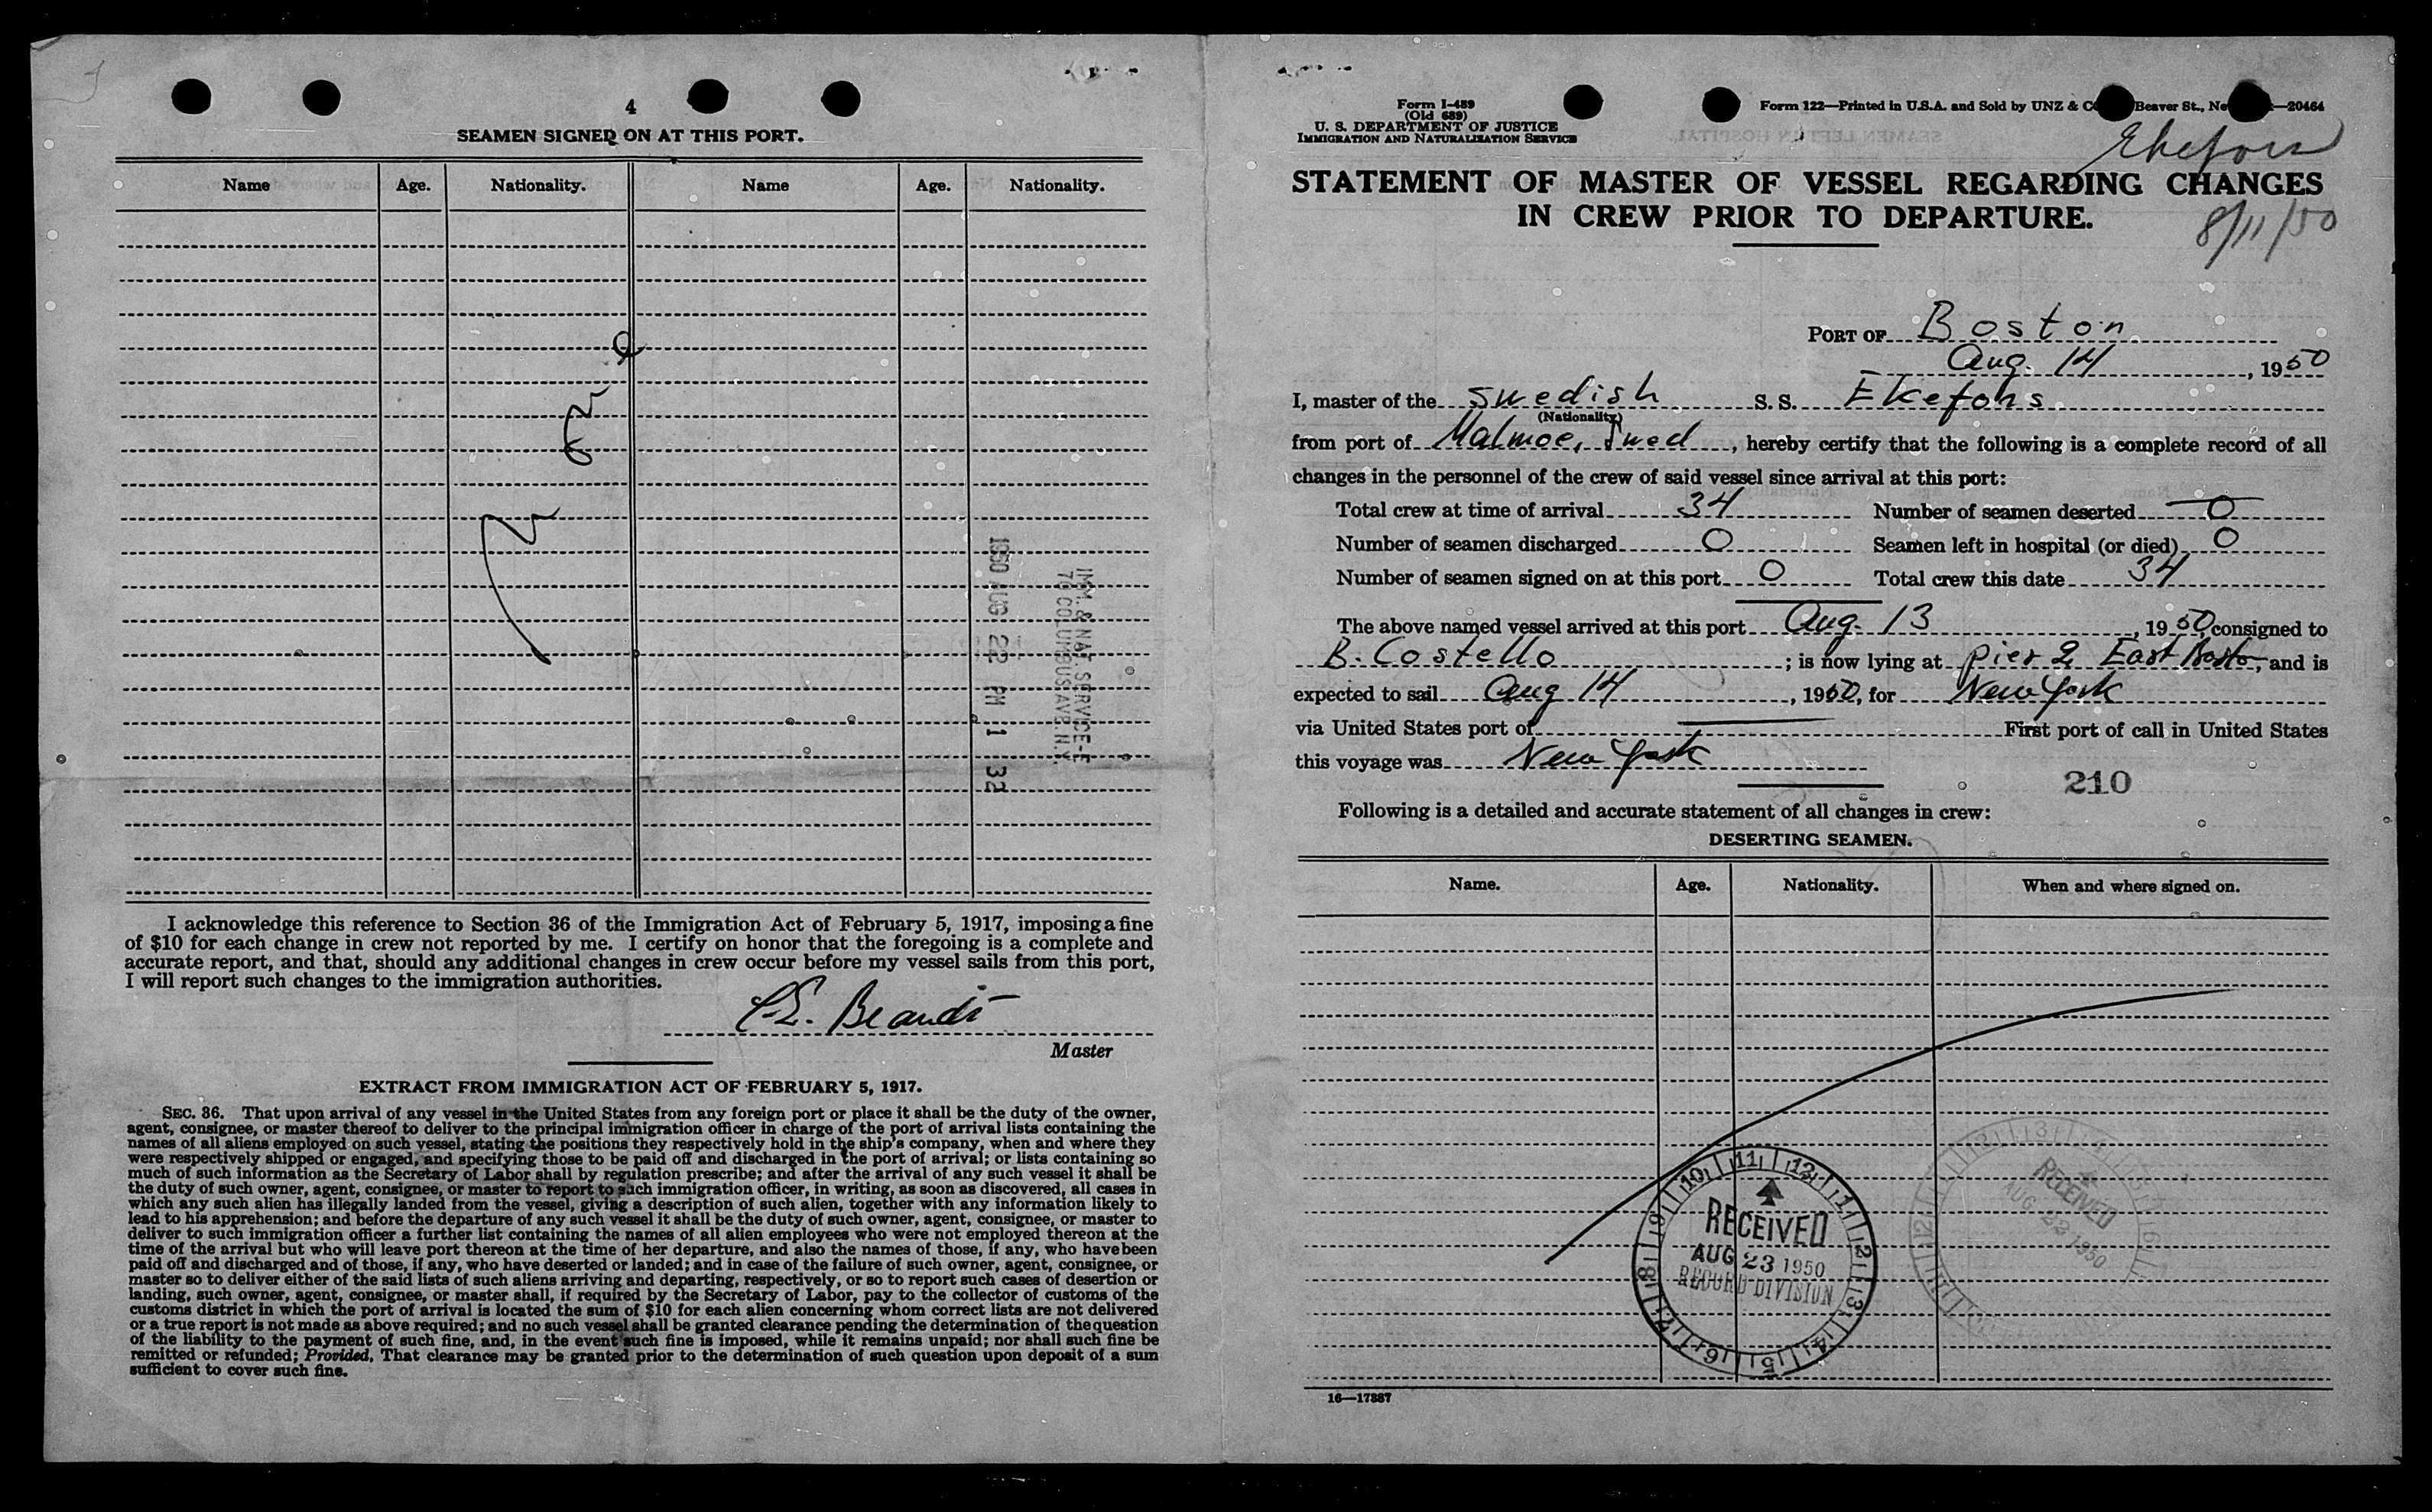 4
SEAMEN SIGNED ON AT THIS PORT.
Name Age. Nationality. Name Age. Nationality.
None
1950 AUG 22 PM 1 32
IMM. & NAT SERVICE-
70 COLUMBUS AVE. N.Y.
I acknowledge this reference to Section 36 of the Immigration Act of February 5, 1917, imposing a fine
of $10 for each change in crew not reported by me. I certify on honor that the foregoing is a complete and
accurate report, and that, should any additional changes in crew occur before my vessel sails from this port,
I will report such changes to the immigration authorities.
Master
EXTRACT FROM IMMIGRATION ACT OF FEBRUARY 5, 1917.
SEC. 36. That upon arrival of any vessel in the United States from any foreign port or place it shall be the duty of the owner,
agent, consignee, or master thereof to deliver to the principal immigration officer in charge of the port of arrival lists containing the
names of all aliens employed on such vessel, stating the positions they respectively hold in the ship's company, when and where they
were respectively shipped or engaged, and specifying those to be paid off and discharged in the port of arrival; or lists containing so
much of such information as the Secretary of Labor shall by regulation prescribe; and after the arrival of any such vessel it shall be
the duty of such owner, agent, consignee, or master to report to such immigration officer, in writing, as soon as discovered, all cases in
which any such alien has illegally landed from the vessel, giving a description of such alien, together with any information likely to
lead to his apprehension; and before the departure of any such vessel it shall be the duty of such owner, agent, consignee, or master to
deliver to such immigration officer a further list containing the names of all alien employees who were not employed thereon at the
time of the arrival but who will leave port thereon at the time of her departure, and also the names of those, if any, who have been
paid off and discharged and of those, if any, who have deserted or landed; and in case of the failure of such owner, agent, consignee, or
master so to deliver either of the said lists of such aliens arriving and departing, respectively, or so to report such cases of desertion or
landing, such owner, agent, consignee, or master shall, if required by the Secretary of Labor, pay to the collector of customs of the
customs district in which the port of arrival is located the sum of $10 for each alien concerning whom correct lists are not delivered
or a true report is not made as above required; and no such vessel shall be granted clearance pending the determination of the question
of the liability to the payment of such fine, and, in the event such fine is imposed, while it remains unpaid; nor shall such fine be
remitted or refunded; Provided, That clearance may be granted prior to the determination of such question upon deposit of a sum
sufficient to cover such fine.
Form I-489
(Old 689)
U. S. DEPARTMENT OF JUSTICE
IMMIGRATION AND NATURALIZATION SERVICE
Form 122—Printed in U.S.A. and Sold by UNZ & Beaver St., —20464
Ekefors
STATEMENT OF MASTER OF VESSEL REGARDING CHANGES
IN CREW PRIOR TO DEPARTURE.
8/11/50
PORT OF Boston
Aug. 14, 1950
I, master of the swedish S. S. Ekefors
(Nationality)
from port of Malmoe, Swed, hereby certify that the following is a complete record of all
changes in the personnel of the crew of said vessel since arrival at this port:
Total crew at time of arrival 34 Number of seamen deserted 0
Number of seamen discharged 0 Seamen left in hospital (or died) 0
Number of seamen signed on at this port 0 Total crew this date 34
The above named vessel arrived at this port Aug. 13, 1950, consigned to
B. Costello; is now lying at pier 2 East Boston, and is
expected to sail Aug 14, 1950, for New York
via United States port of First port of call in United States
this voyage was New York
210
Following is a detailed and accurate statement of all changes in crew:
DESERTING SEAMEN.
Name. Age. Nationality. When and where signed on.
RECEIVED
AUG 23 1950
RECORD DIVISION
RECEIVED
AUG 23 1950
16—17387